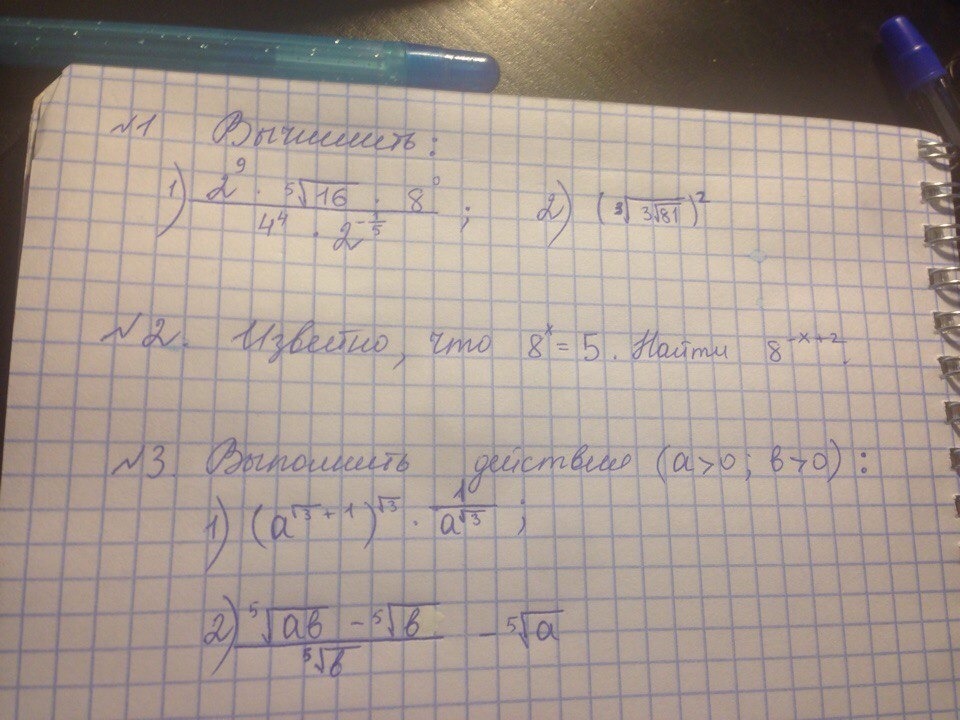 №1 Вычислить:
1) (2⁹ · ⁵√16 · 8⁰) / (4⁴ · 2^(-1/5)) ; 2) (³√(3√81))²
№2. Известно, что 8ˣ = 5. Найти 8^(-x+2).
№3. Выполнить действия (a>0; b>0):
1) (a^(√3+1))^√3 · 1/a^√3 ;
2) (⁵√ab - ⁵√b) / ⁵√b - ⁵√a